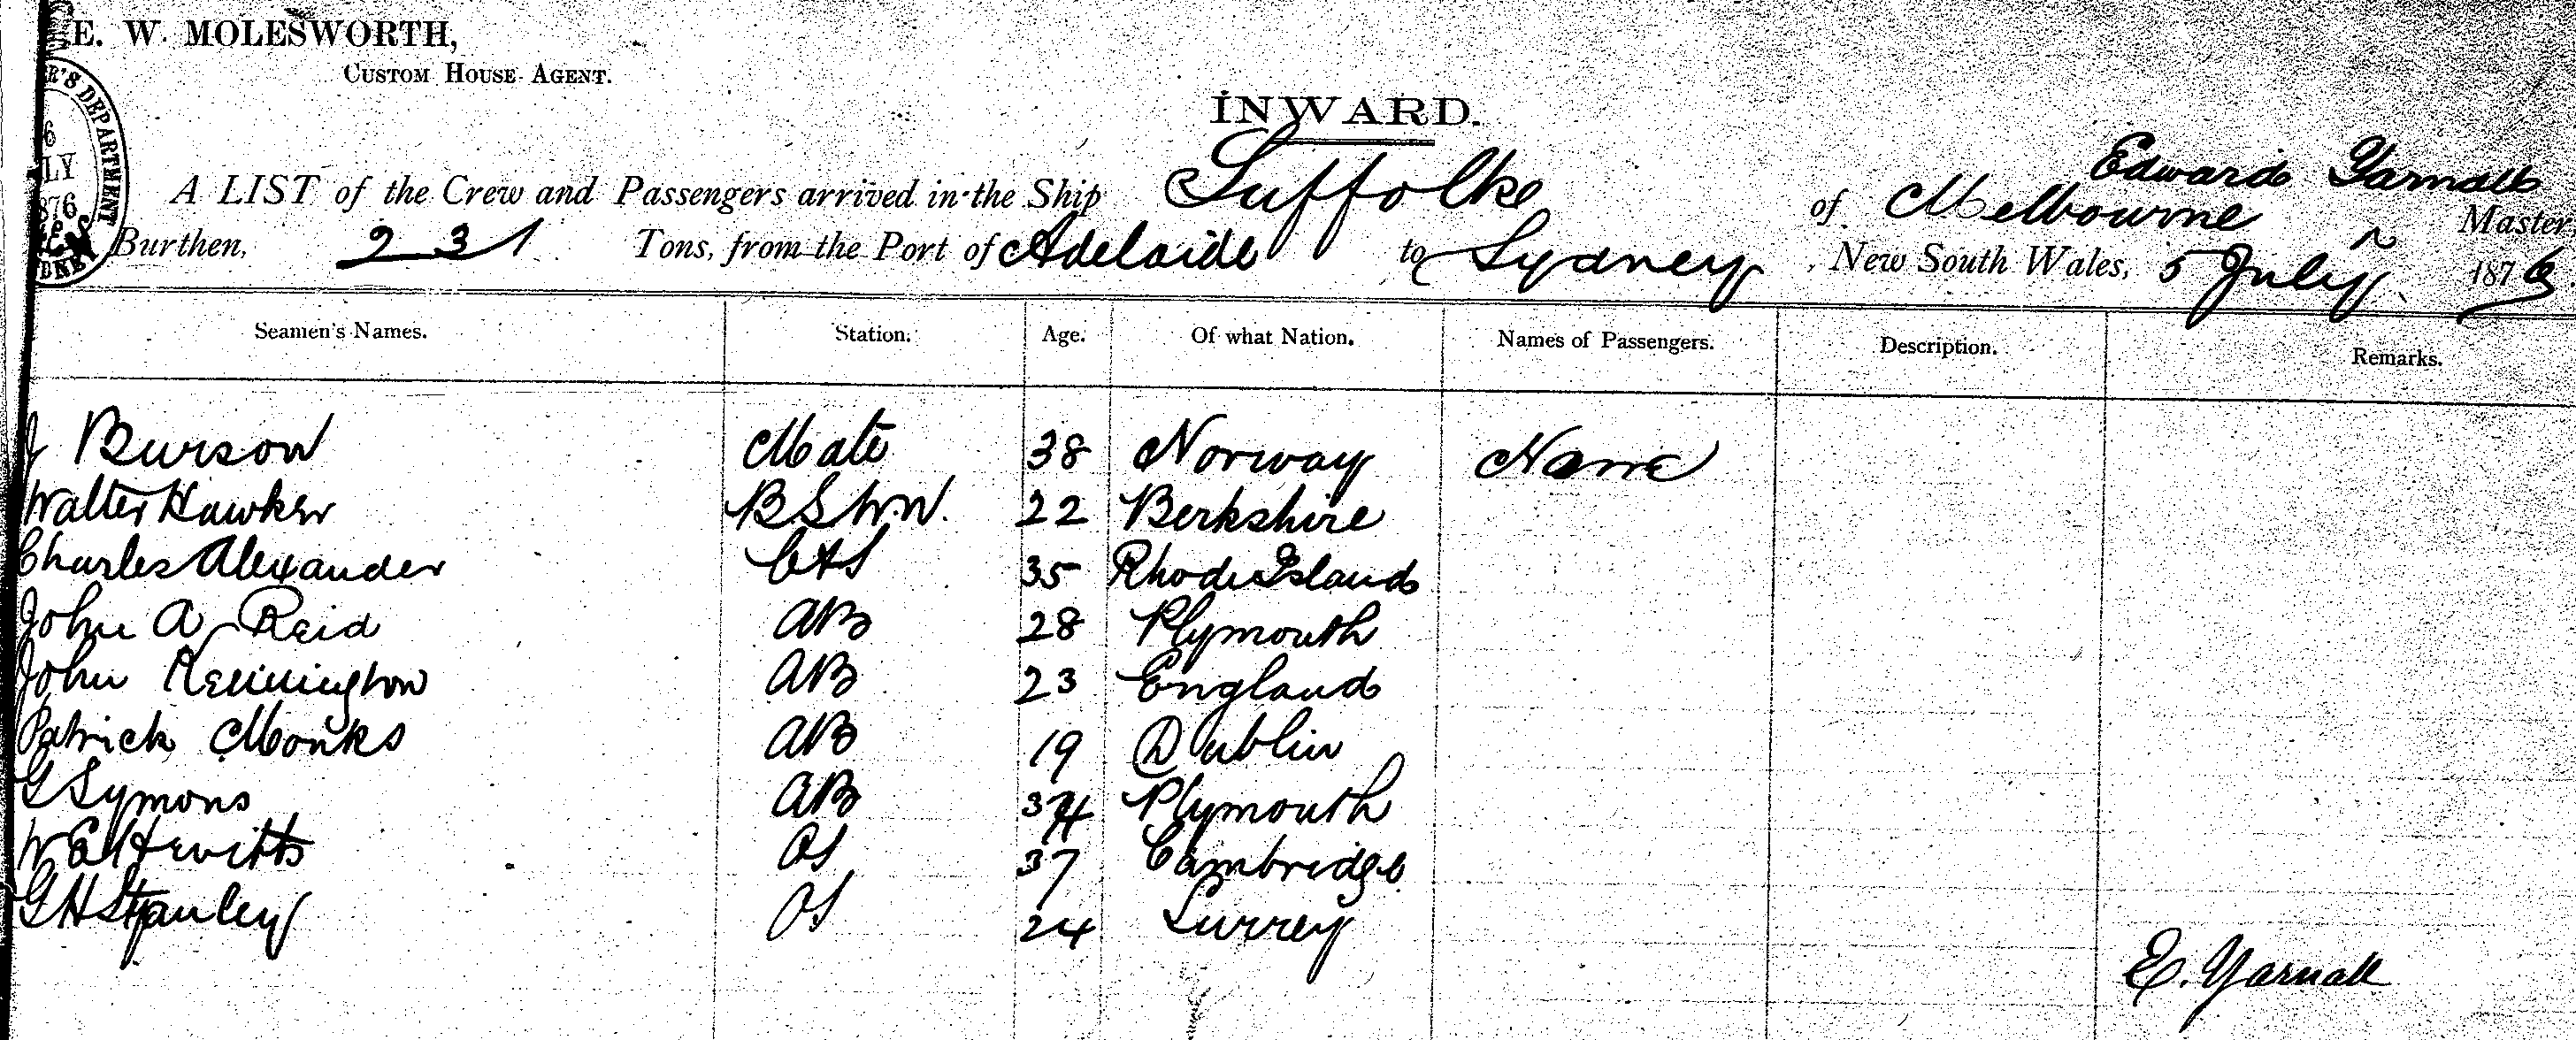 E. W. MOLESWORTH,
CUSTOM HOUSE AGENT.
R'S DEPARTMENT
6
LY
876
DNEY
INWARD.
Edward Yarnall
A LIST of the Crew and Passengers arrived in the Ship Suffolke of Melbourne Master,
Burthen, 231 Tons, from the Port of Adelaide to Sydney, New South Wales, 5 July 1876
Seamen's Names. Station. Age. Of what Nation. Names of Passengers. Description. Remarks.
J Burson Mate 38 Norway None
Walter Hawker BSWN. 22 Berkshire
Charles Alexander C&S 35 Rhode Island
John A Reid AB 28 Plymouth
John Kennington AB 23 England
Patrick Monks AB 19 Dublin
G Symons AB Plymouth
W E Hewitts OS 37 Cambridge
G H Stanley OS 24 Surrey
E. Yarnall